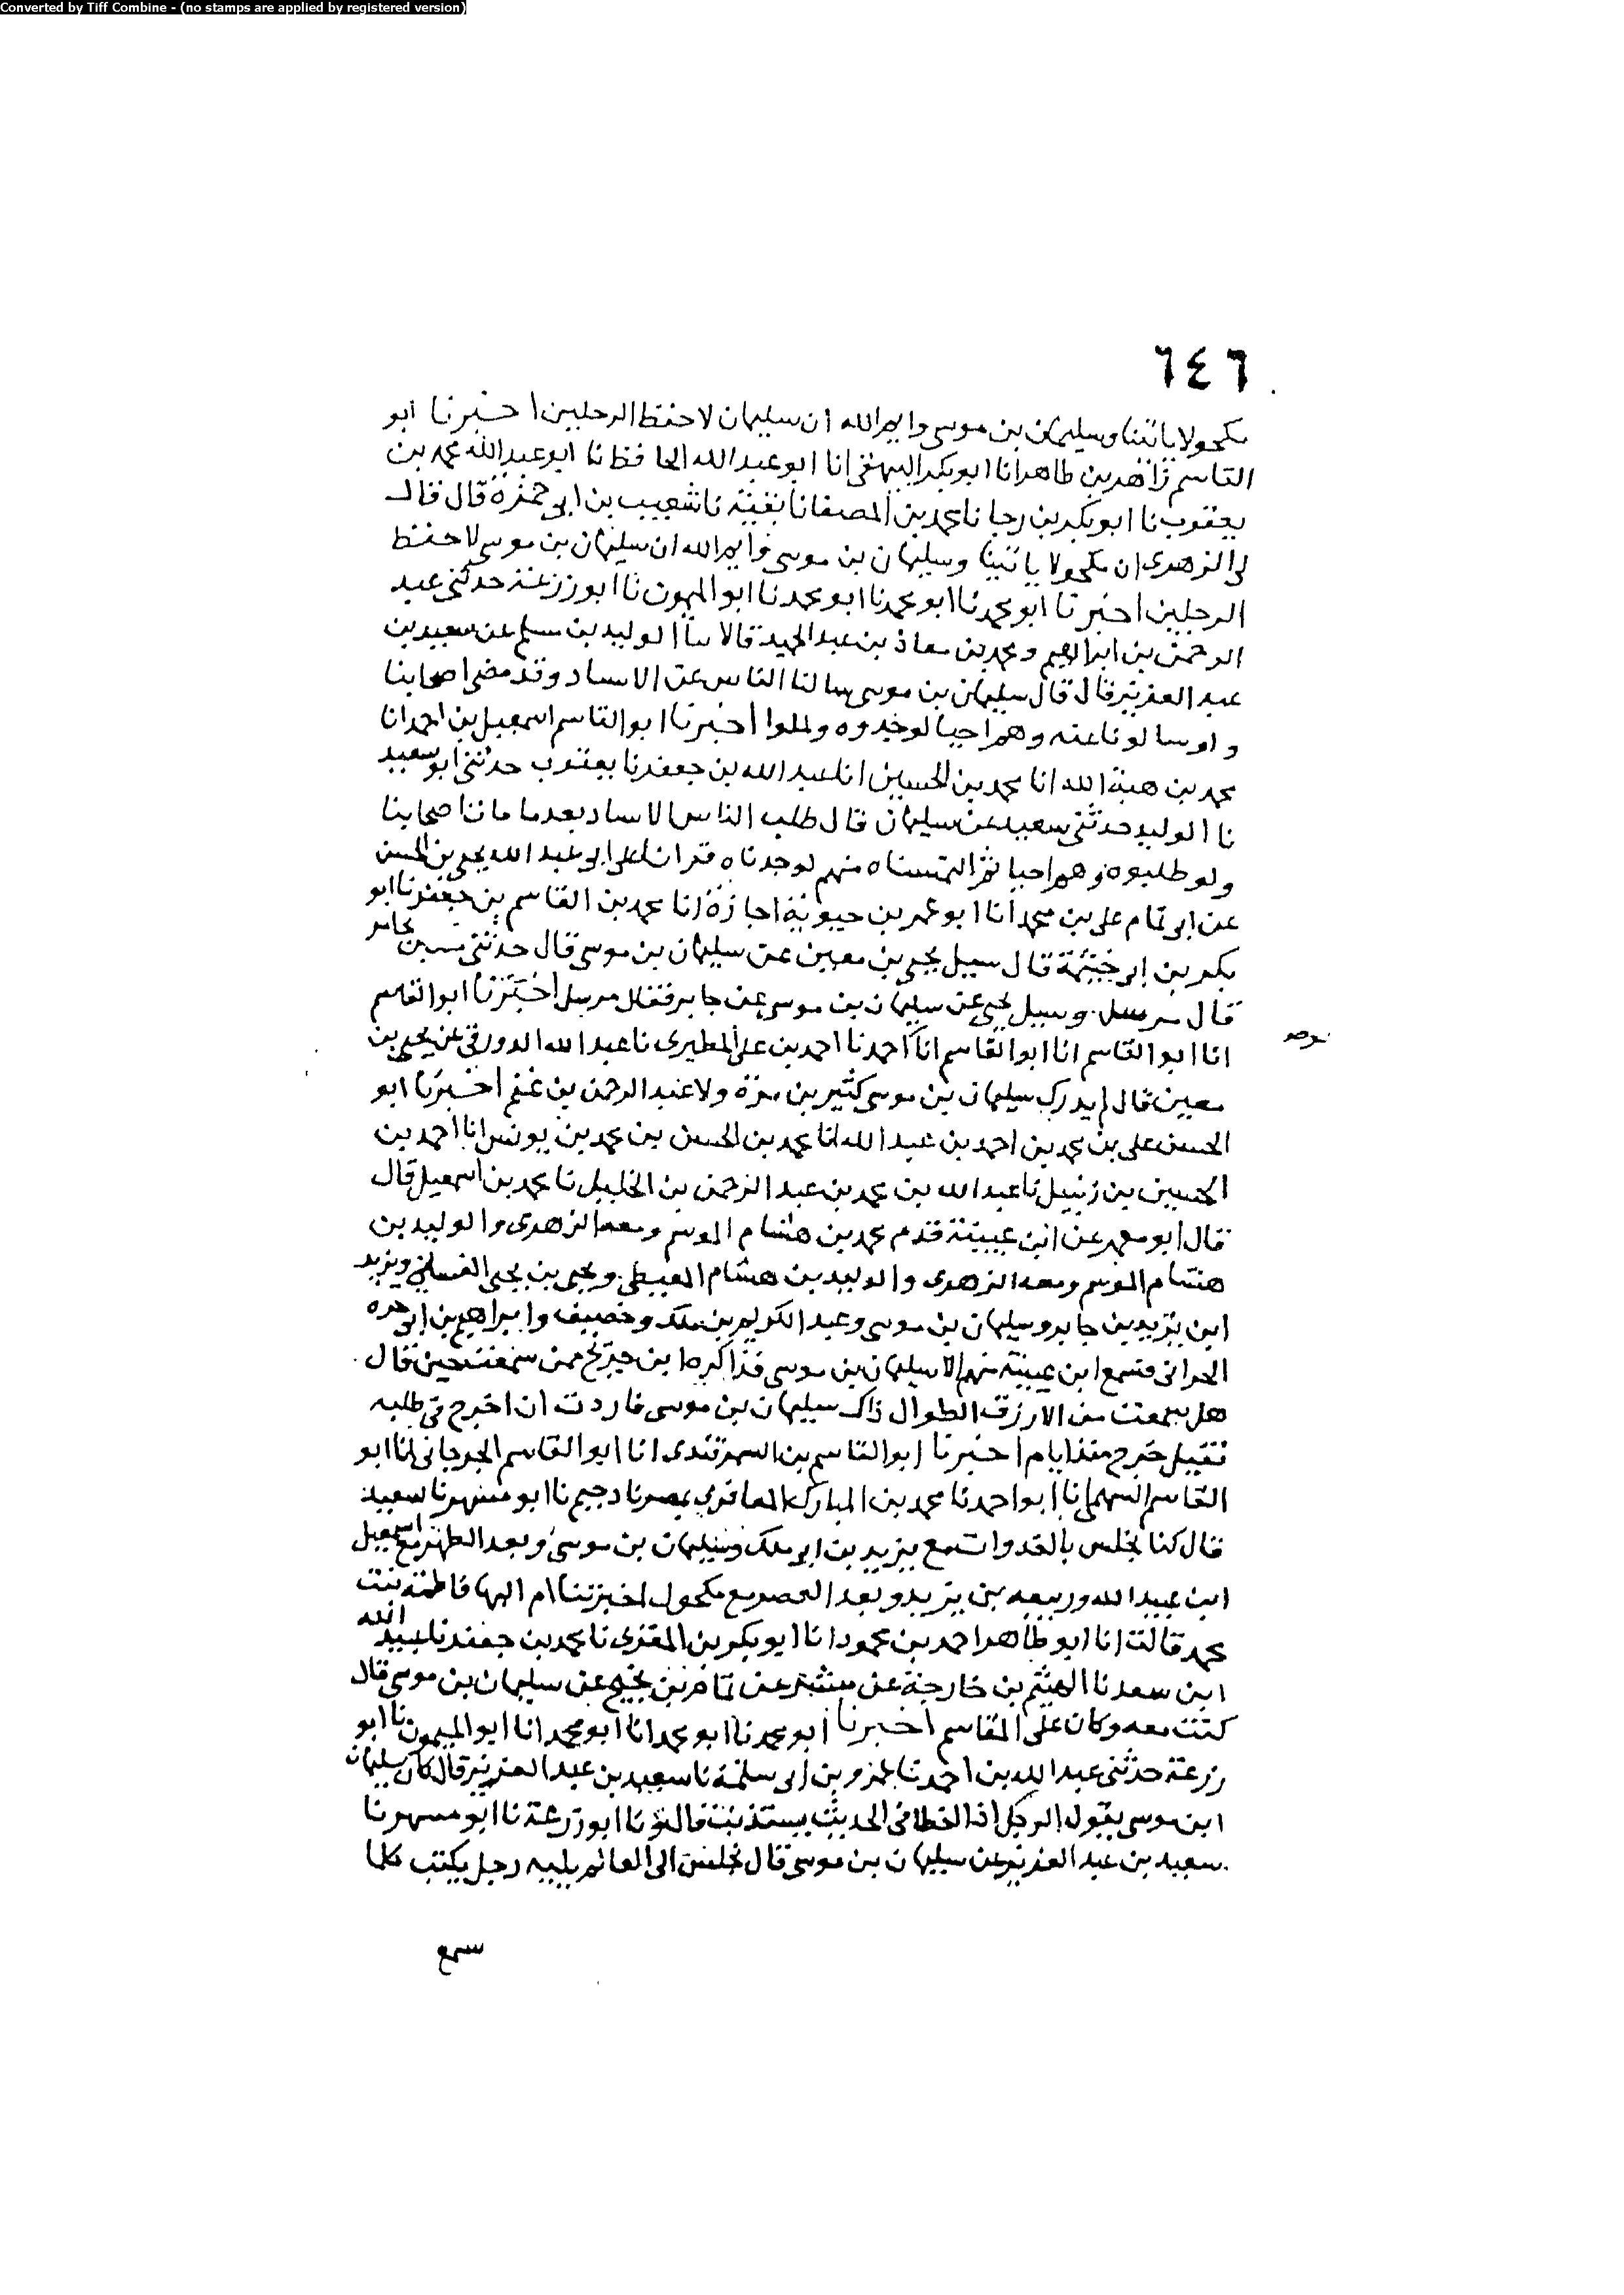 Converted by Tiff Combine - (no stamps are applied by registered version)
٦٤٦
مكحولا ياتينا وسليمان بن موسى وايم الله ان سليمان لاحفظ الرجلين اخبرنا ابو
القاسم زاهر بن طاهر انا ابو بكر البيهقى انا ابو عبد الله الحافظ نا ابو عبد الله محمد بن
يعقوب نا ابو بكر بن رجا نا محمد بن المصفا نا بقية نا شعيب بن ابى حمزة قال قال
لى الزهرى ان مكحولا ياتينا وسليمان بن موسى وايم الله ان سليمان بن موسى لاحفظ
الرجلين اخبرنا ابو محمد نا ابو محمد نا ابو محمد نا ابو الميمون نا ابو زرعة حدثنى عبد
الرحمن بن ابراهيم ومحمد بن معاذ بن عبد الحميد قالا نا الوليد بن مسلم عن سعيد بن
عبد العزيز قال قال سليمان بن موسى سالنا الناس عن الاسناد وقد مضى اصحابنا
ولو سالونا عنه وهم احيا لوجدوه اخبرنا ابو القاسم اسمعيل بن احمد انا
محمد بن هبة الله انا محمد بن الحسين انا عبد الله بن جعفر نا يعقوب حدثنى ابو سعيد
نا الوليد حدثنى سعيد عن سليمان قال طلب الناس الاسناد بعد ما مات اصحابنا
ولو طلبوه وهم احيا ثم التمسناه منهم لوجدناه قرانا على ابى عبد الله يحيى بن الحسن
عن ابى تمام على بن محمد انا ابو عمر بن حيوية اجازة انا محمد بن القاسم بن جعفر نا ابو
بكر بن ابى خيثمة قال سيل يحيى بن معين عن سليمان بن موسى قال حدثنى
قال مرسل وسيل يحيى عن سليمان بن موسى عن جابر فقال مرسل اخبرنا ابو القاسم
انا ابو القاسم انا ابو القاسم انا احمد نا احمد بن على المطيرى نا عبد الله الدورقى عن يحيى بن
معين قال لم يدرك سليمان بن موسى كثير بن مرة ولا عبد الرحمن بن غنم اخبرنا ابو
الحسن على بن محمد بن احمد بن عبد الله انا محمد بن الحسن بن محمد بن يونس انا احمد بن
الحسين بن زنبيل نا عبد الله بن محمد بن عبد الرحمن بن الخليل نا محمد بن اسمعيل قال
قال ابو معمر عن ابن عيينة قدم محمد بن هشام الموسم ومعه الزهرى والوليد بن
هشام الموسم ومعه الزهرى والوليد بن هشام المعيطى ويحيى بن يحيى الغسانى ويزيد
ابن يزيد بن جابر وسليمان بن موسى وعبد الكريم بن ملك وخصيف وابراهيم بن ابى حره
الحرانى فسمع ابن عيينة منهم الا سليمان بن موسى فذاكرنا ابن جريج ممن سمعت حين قال
هل سمعت من الازرق الطوال ذاك سليمان بن موسى فاردت ان اخرج فى طلبه
فقيل خرج منذ ايام اخبرنا ابو القاسم بن السمرقندى انا ابو القاسم الجرجانى انا ابو
القاسم السهمى انا ابو احمد نا محمد بن المبارك المعافرى بمصر نا دحيم نا ابو مسهر نا سعيد
قال كنا نجلس بالغدوات مع يزيد بن ابى ملك وسليمان بن موسى وبعد الظهر مع اسمعيل
ابن عبيد الله وربيعه بن يزيد وبعد العصر مع مكحول اخبرتنا ام البها فاطمة بنت
محمد قالت انا ابو طاهر احمد بن محمود انا ابو بكر بن المقرى نا محمد بن جعفر نا عبيد الله
ابن سعد نا الهيثم بن خارجة عن عن تمام بن نجيح عن سليمان بن موسى قال
كنت معه وكان على المقاسم اخبرنا ابو محمد نا ابو محمد انا ابو محمد انا ابو الميمون نا ابو
زرعة حدثنى عبد الله بن احمد نا عمرو بن ابى سلمة نا سعيد بن عبد العزيز قال كان سليمان
ابن موسى يقول الرجل اذا اخطا فى الحديث قال ونا ابو زرعة نا ابو مسهر نا
سعيد بن عبد العزيز عن سليمان بن موسى قال يجلس الى العالم ثلاثة رجل يكتب كلما
سمع